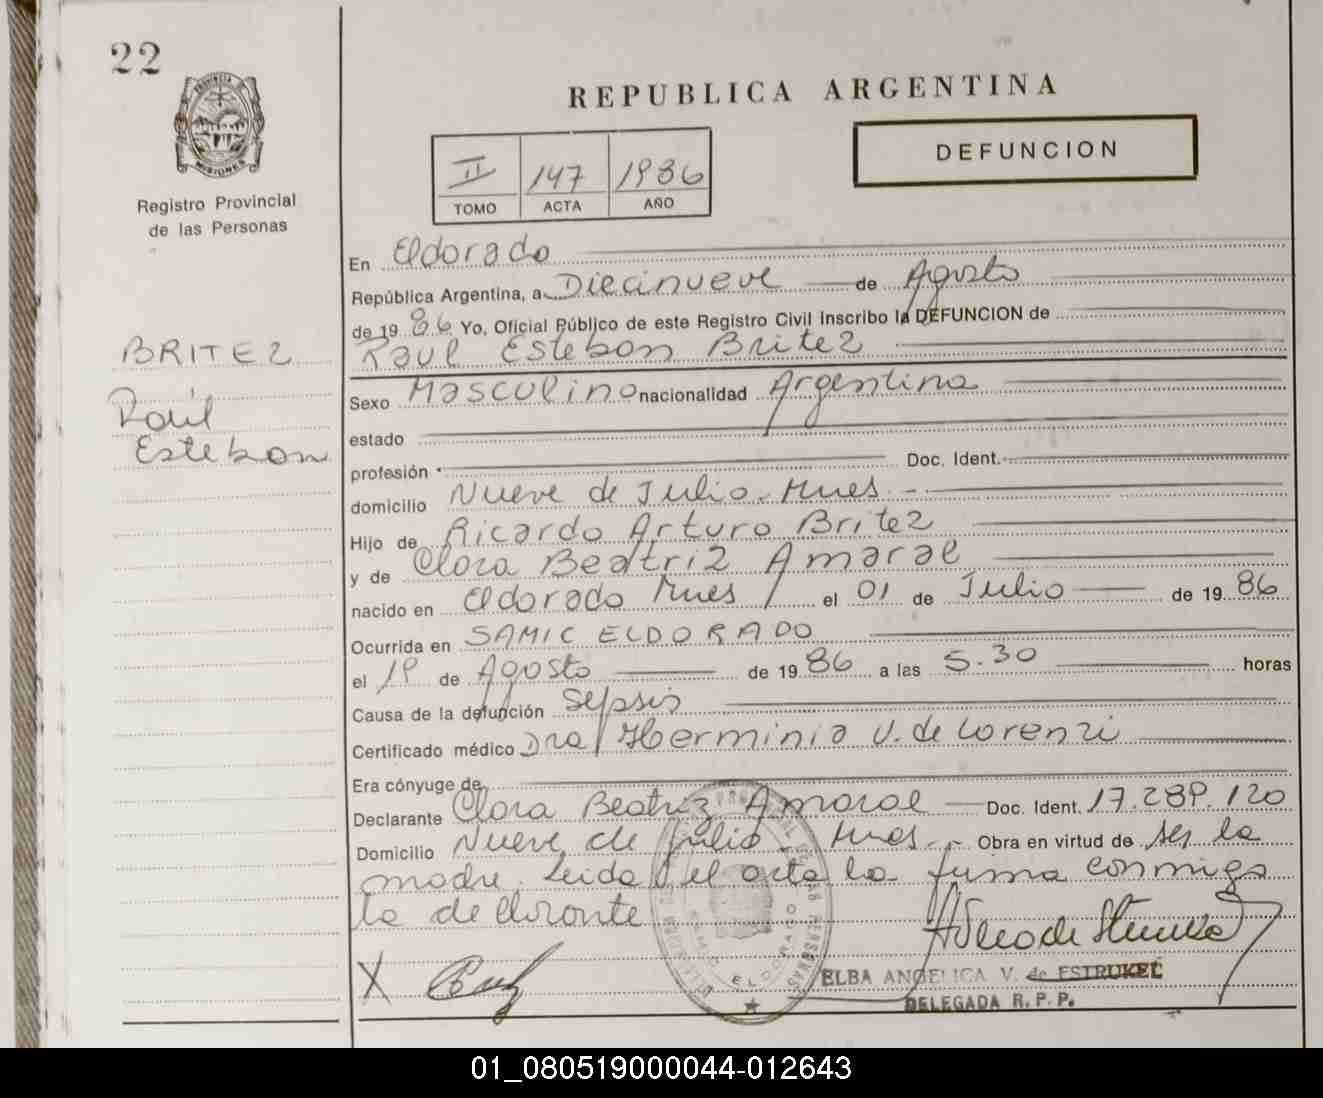 22
PROVINCIA DE
MISIONES
Registro Provincial
de las Personas
BRITEZ
Raúl
Esteban
REPUBLICA ARGENTINA
DEFUNCION
II 147 1986
TOMO ACTA AÑO
En Eldorado
República Argentina, a Diecinueve de Agosto
de 19 86 Yo, Oficial Público de este Registro Civil inscribo la DEFUNCION de
Raul Esteban Britez
Sexo Masculino nacionalidad Argentina
estado
profesión Doc. Ident.
domicilio Nueve de Julio. Mnes.
Hijo de Ricardo Arturo Britez
y de Clora Beatriz Amaral
nacido en Eldorado Mnes el 01 de Julio de 19 86
Ocurrida en SAMIC ELDORADO
el 19 de Agosto de 19 86 a las 5.30 horas
Causa de la defunción Sepsis
Certificado médico Dra Herminia V. de Lorenzi
Era cónyuge de
Declarante Clora Beatriz Amaral Doc. Ident. 17.289.120
Domicilio Nueve de Julio - Mnes. Obra en virtud de ser la
madre. Leida el acta la firma conmigo
la declarante
X
ELBA ANGELICA V. de ESTRUKEL
DELEGADA R. P. P.
01_080519000044-012643